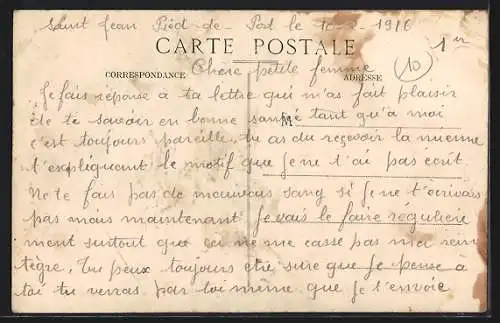 Saint Jean Pied-de-Pod le 10-2-1916
CARTE POSTALE
1 er
10
CORRESPONDANCE
ADRESSE
Chere petite femme
Je fais réponse à ta lettre qui m'as fait plaisir
de te savoir en bonne santé tant qu'à moi
M
c'est toujours pareille, tu as du reçevoir la mienne
t'expliquant le motif que je ne t'ai pas écrit
Ne te fais pas de mauvais sang si je ne t'écrivais
pas mais maintenant je vais le faire régulière
ment surtout que ça ne me casse pas ma
tu peux toujours etre sure que je pense à
toi tu verras par toi même que je t'envoie